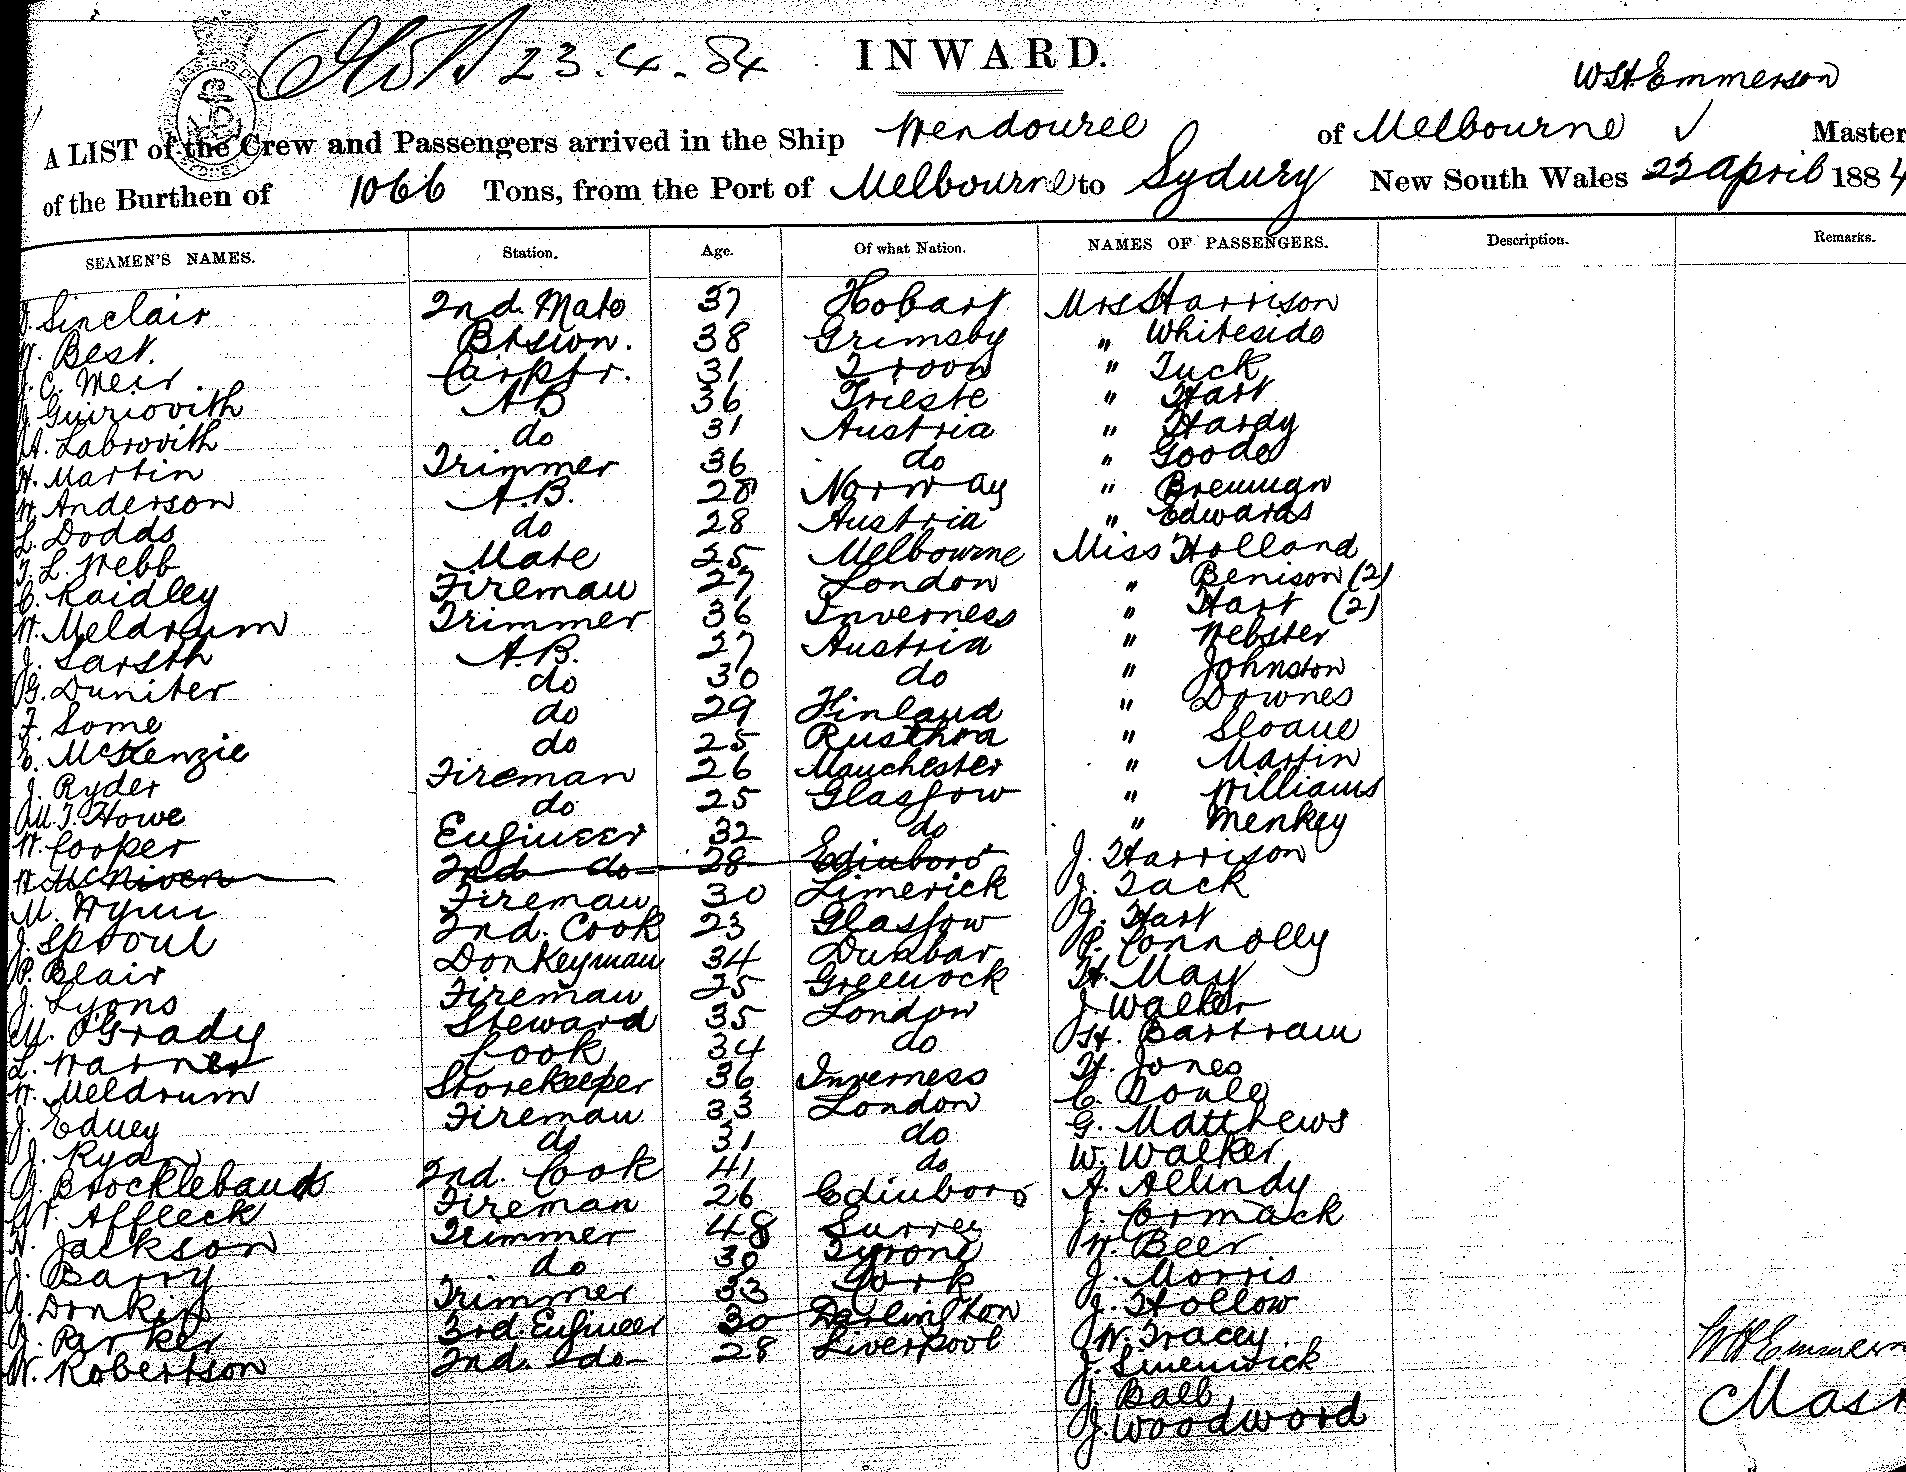 23.4.84 INWARD.
W H Emmerson
A LIST of the Crew and Passengers arrived in the Ship Wendouree of Melbourne Master
of the Burthen of 1066 Tons, from the Port of Melbourne to Sydury New South Wales 23 April 1884
SEAMEN'S NAMES. Station. Age. Of what Nation. NAMES OF PASSENGERS. Description. Remarks.
Sinclair 2nd. Mate 37 Hobart Mrs Harrison
W. Best. Bтswn. 38 Grimsby " Whiteside
J. C. Meir. Carptr. 31 Troon " Tuck
J. Guiriovith AB 36 Trieste " Hart
A. Labrovith do 31 Austria " Hardy
H. Martin Trimmer 36 do " Goode
W. Anderson A.B. 28 Norway " Brennan
L. Dodds do 28 Austria " Edwards
T. L. Webb Mate 25 Melbourne Miss Holland
C. Raidley Fireman 27 London " Benison (2)
W. Meldrum Trimmer 36 Inverness " Hart (2)
J. Sarsth A.B. 27 Austria " Webster
G. Duniter do 30 do " Johnston
F. Some do 29 Finland " Downes
C. McKenzie do 25 " Sloane
J. Ryder Fireman 26 Manchester " Martin
M. J. Howe do 25 Glasgow " Williams
W. Cooper Engineer 32 do " Menkey
W. McNiven 2nd do 28 Edinboro J. Harrison
M. Wynn Fireman 30 Limerick J. Tack
J. Sproul 2nd. Cook 23 Glasgow J. Hart
P. Blair Donkeyman 34 Dunbar P. Connolly
J. Lyons Fireman 25 Greenock H. May
M. O'Grady Steward 35 London J. Walker
L. Warner Cook 34 do H. Bartram
W. Meldrum Storekeeper 36 Inverness H. Jones
J. Edney Fireman 33 London C. Soule
J. Ryan do 31 do G. Matthews
J. Brocklebauds 2nd. Cook 41 do W. Walker
W. Affleck Fireman 26 Edinboro A. Allindy
H. Jackson Trimmer 48 Surrey J. Cormack
J. Barry do 30 Tyrone W. Beer
J. Donkin Trimmer 33 Cork J. Morris
J. Parker 3rd. Engineer 30 Darlington J. Hollow
W. Robertson 2nd. do 28 Liverpool W. Tracey
J. Smenwick
J. Balb
J. Woodword
W H Emmerson